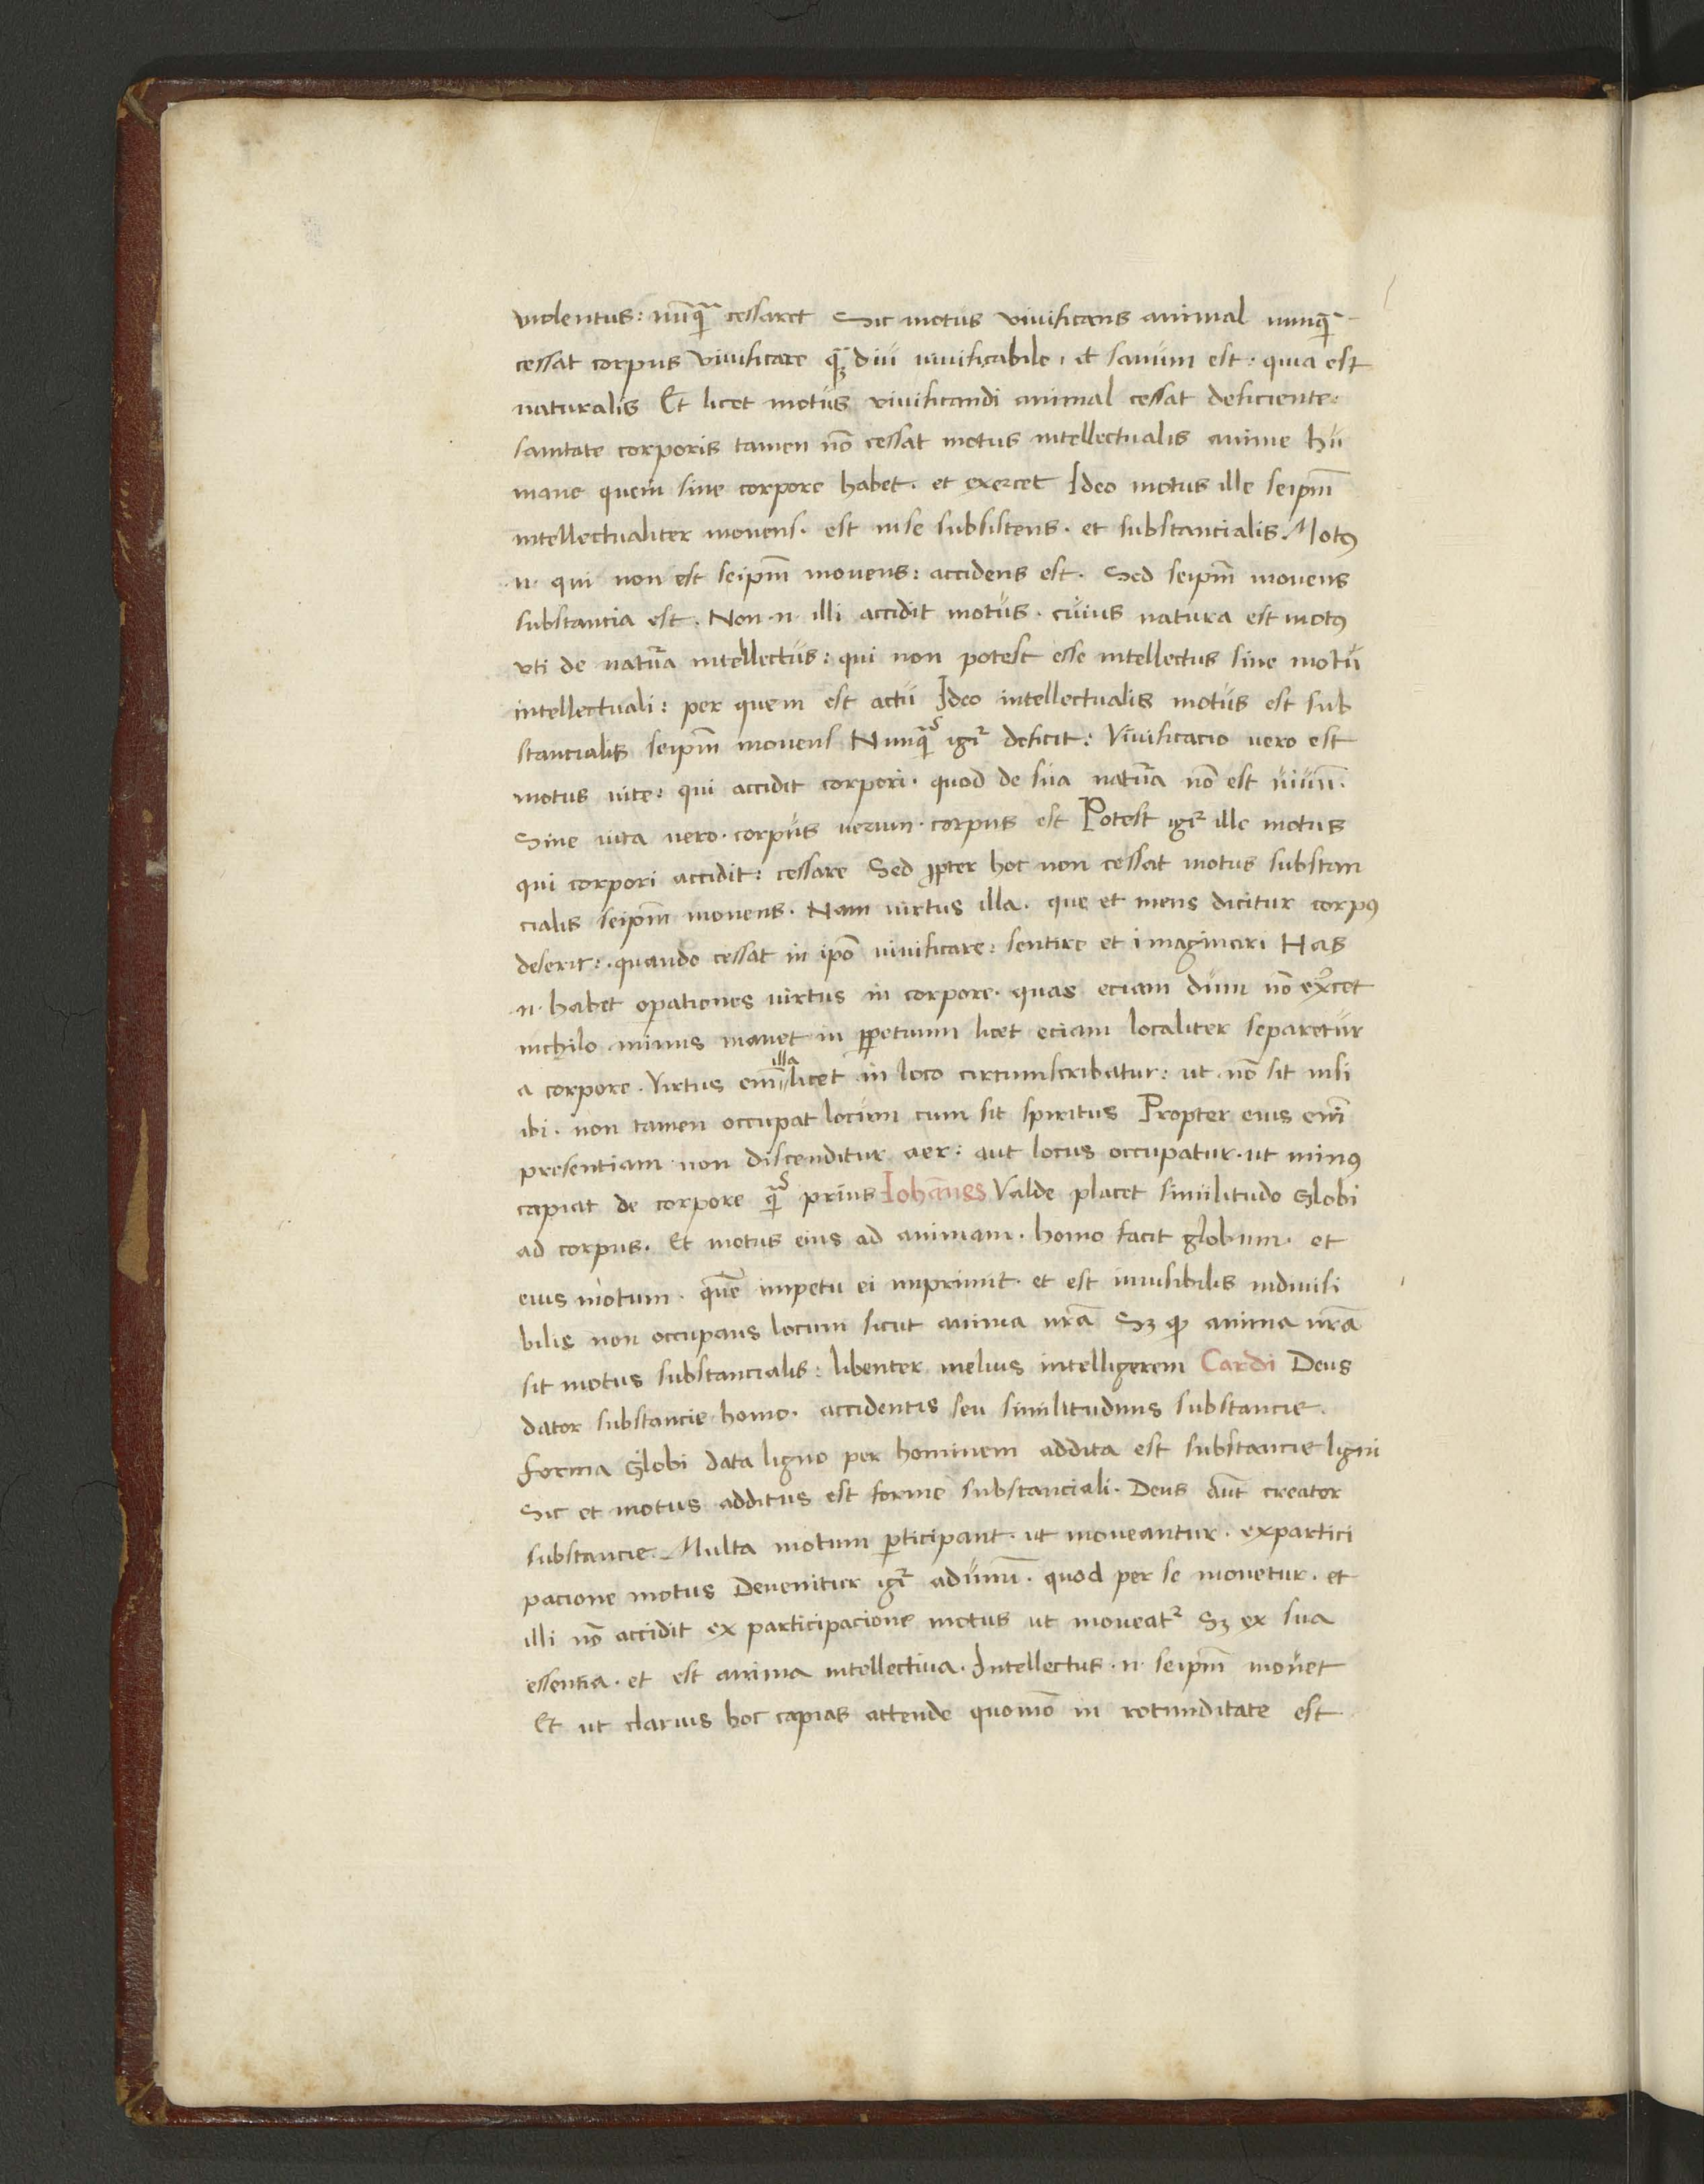 violentus: nu̅q̅ cessaret Sic motus vivificans animal nunq̅
cessat corpus vivificare q̅ diu vivificabile, et sanum est: quia est
naturalis Et licet motus vivificandi animal cessat deficiente:
sanitate corporis tamen no̅ cessat motus intellectualis anime hu
mane quem sine corpore habet. et exercet Ideo motus ille seipm̅
intellectualiter movens. est inse subsistens. et substancialis. Motꝰ
.n. qui non est seipm̅ movens: accidens est. Sed seipm̅ movens
substancia est. Non .n. illi accidit motus. cuius natura est motꝰ
vti de natu̅a intellectus: qui non potest esse intellectus sine motu
intellectuali: per quem est actu Ideo intellectualis motus est sub
stancialis seipm̅ movens Nunq̅ igiᷣ deficit: Vivificacio vero est
motus vite: qui accidit corpori. quod de sua natu̅a no̅ est uiuu̅.
Sine vita vero. corpus verum. corpus est Potest igiᷣ ille motus
qui corpori accidit: cessare Sed ꝓpter hoc non cessat motus substan
cialis seipm̅ movens. Nam virtus illa. que et mens dicitur corpꝰ
deserit:. quando cessat in ipo̅ vivificare: sentire et imaginari Has
.n. habet opationes virtus in corpore. quas eciam dum no̅ exꝰcet
nichilo minus manet in ꝑpetuum licet eciam localiter separetur
a corpore. Virtus eni̅ illa licet in loco circumscribatur: ut no̅ sit nisi
ibi. non tamen occupat locum cum sit spiritus Propter eius eni̅
presentiam non discenditur aer: aut locus occupatur. ut minꝰ
capiat de corpore q̅ prius Ioha̅nes Valde placet similitudo Globi
ad corpus. Et motus eius ad animam. homo facit globum. et
eius motum. que̅ impetu ei imprimit. et est invisibilis indivisi
bilis non occupans locum sicut anima nra̅ Sꝫ ꝙ anima nra̅
sit motus substancialis: libenter melius intelligerem Cardi Deus
dator substancie homo. accidentis seu similitudinis substancie.
forma Globi data ligno per hominem addita est substancie ligni
Sic et motus additus est forme substanciali. Deus aut̅ creator
substancie. Multa motum ꝑticipant. ut moveantur. expartici
pacione motus Devenitur igiᷣ adunu̅. quod per se movetur. et
illi no̅ accidit ex participacione motus ut moveatᷣ Sꝫ ex sua
essentia. et est anima intellectiva. Intellectus .n. seipm̅ movet
Et ut clarius hoc capias attende quomo̅ in rotunditate est